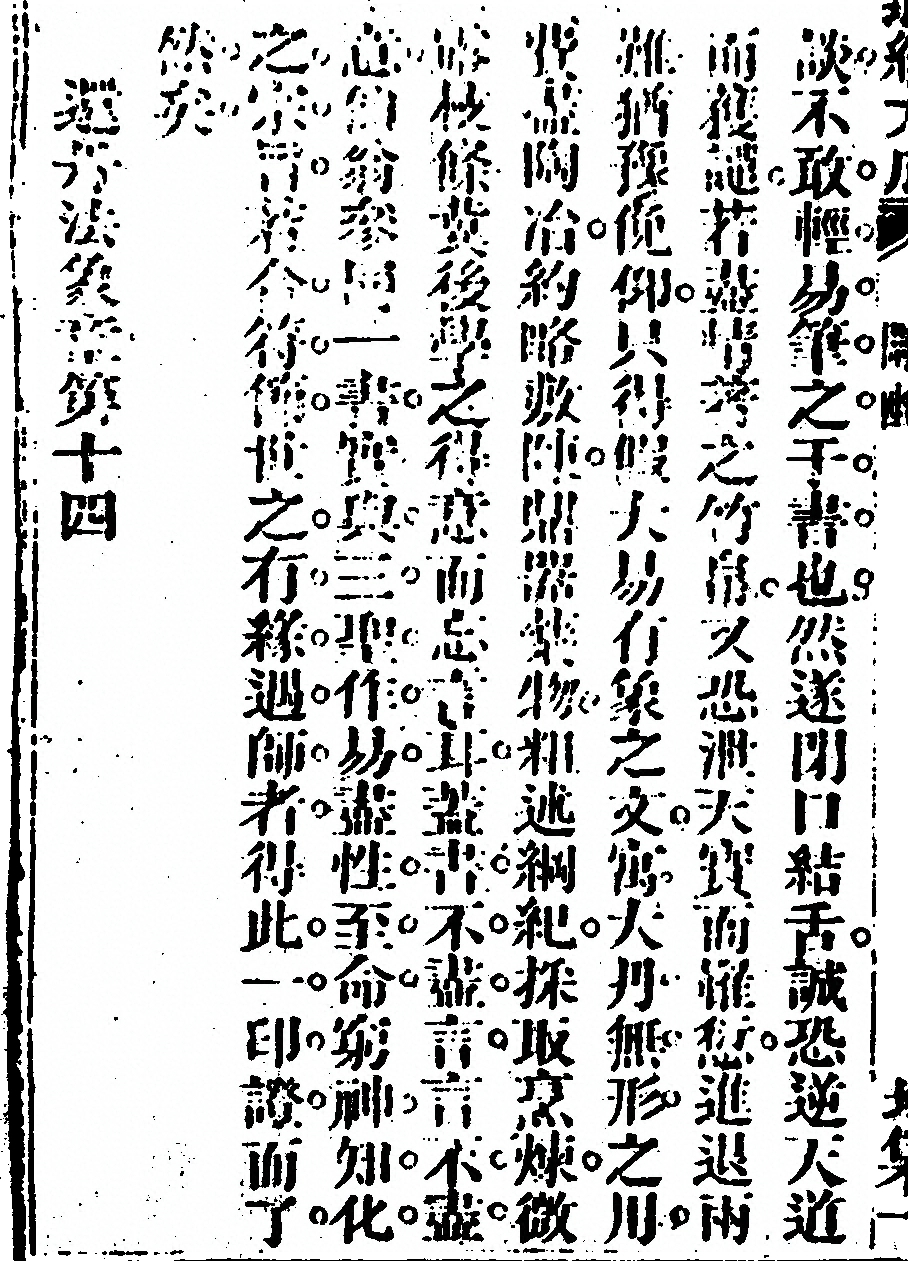 談不敢輕易筆之于書也然遂閉口結舌誠恐逆天道
而獲譴若盡情著之竹帛又恐泄天寶而罹愆進退兩
難猶豫俛仰只得假大易有象之文寓大丹無形之用
費盡陶冶約略敷陳鼎器藥物粗述綱紀採取烹煉微
露枝條冀後學之得意而忘言耳蓋書不盡言言不盡
意仙翁參同一書實與三聖作易盡性至命窮神知化
之宗旨若合符倘世之有緣遇師者得此一印證而了
然矣
還丹法象章第十四